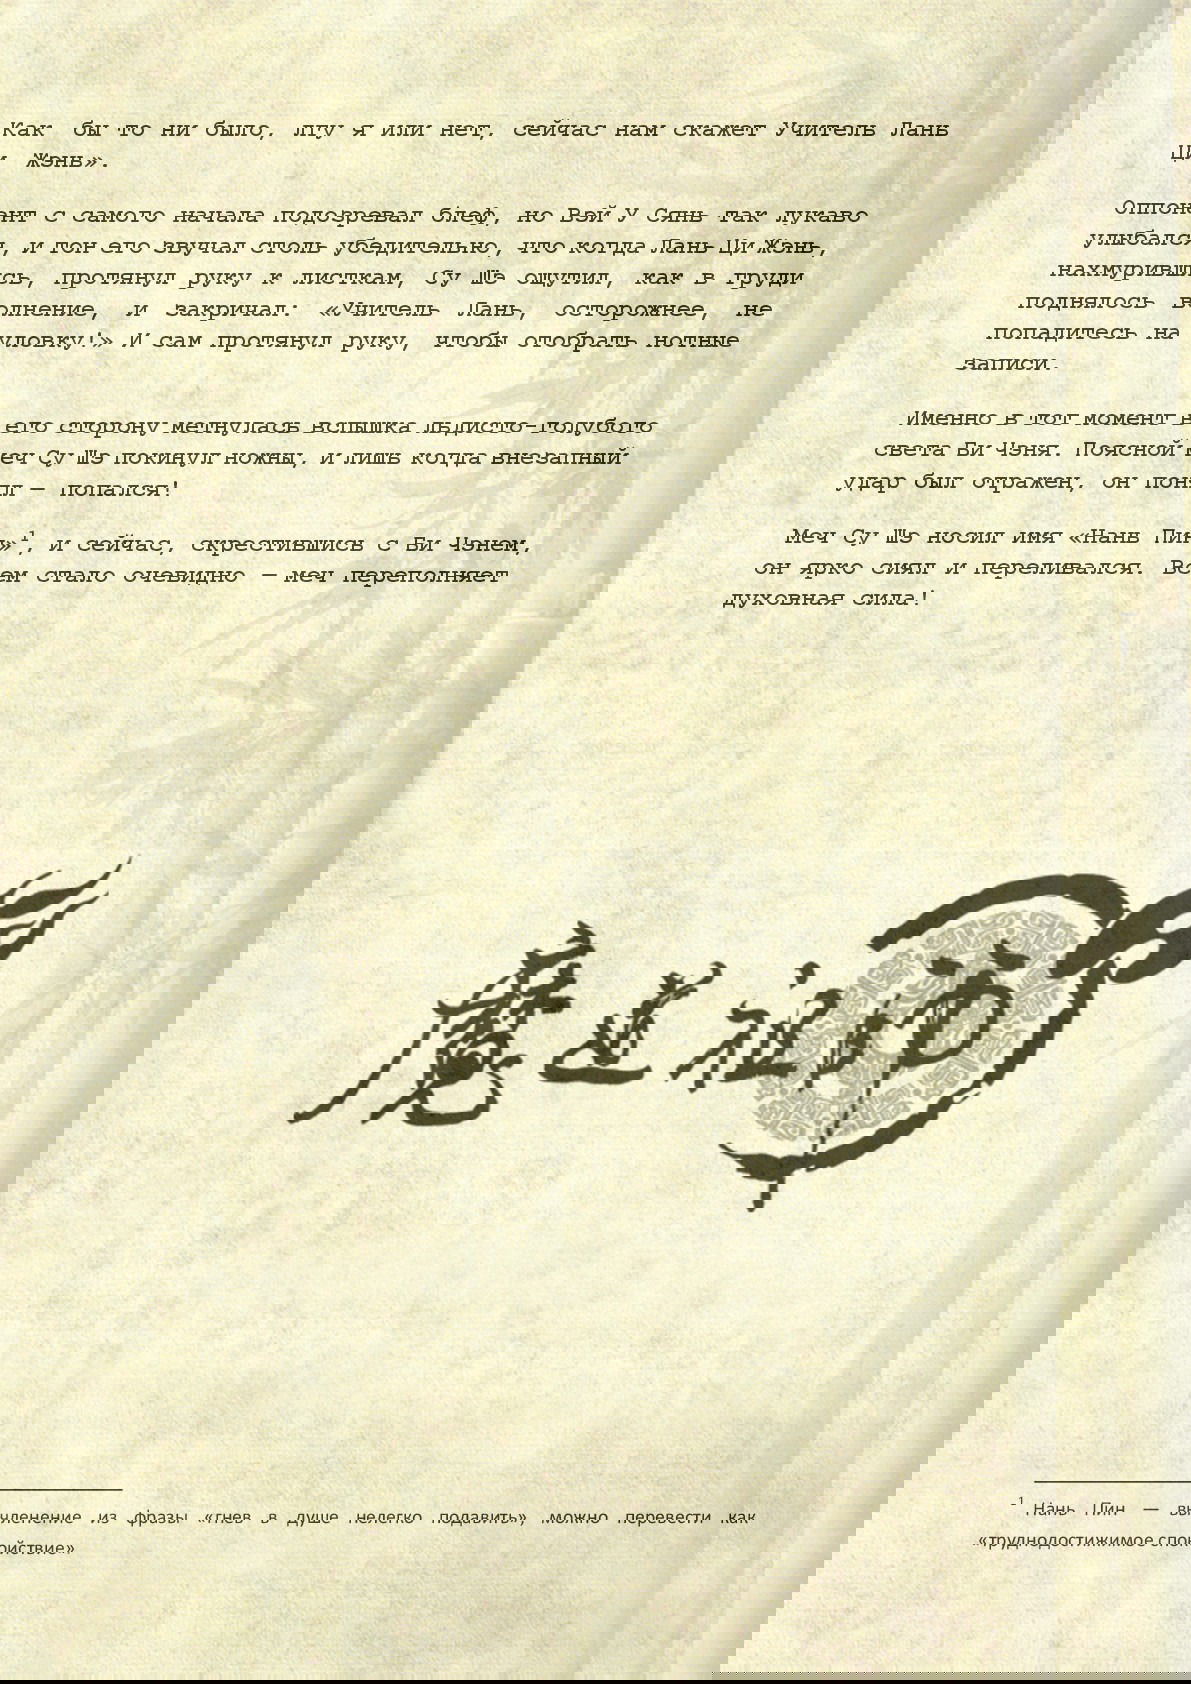 Как бы то ни было, лгу я или нет, сейчас нам скажет Учитель Лань
Ци Жэнь».
Оппонент с самого начала подозревал блеф, но Вэй У Сянь так лукаво
улыбался, и тон его звучал столь убедительно, что когда Лань Ци Жэнь,
нахмурившись, протянул руку к листкам, Су Шэ ощутил, как в груди
поднялось волнение, и закричал: «Учитель Лань, осторожнее, не
попадитесь на уловку!» И сам протянул руку, чтобы отобрать нотные
записи.
Именно в тот момент в его сторону метнулась вспышка льдисто-голубого
света Би Чэня. Поясной меч Су Шэ покинул ножны, и лишь когда внезапный
удар был отражен, он понял — попался!
Меч Су Шэ носил имя «Нань Пин»¹, и сейчас, скрестившись с Би Чэнем,
он ярко сиял и переливался. Всем стало очевидно – меч переполняет
духовная сила!
魔道祖师
¹ Нань Пин — вычленение из фразы «гнев в душе нелегко подавить», можно перевести как
«труднодостижимое спокойствие»